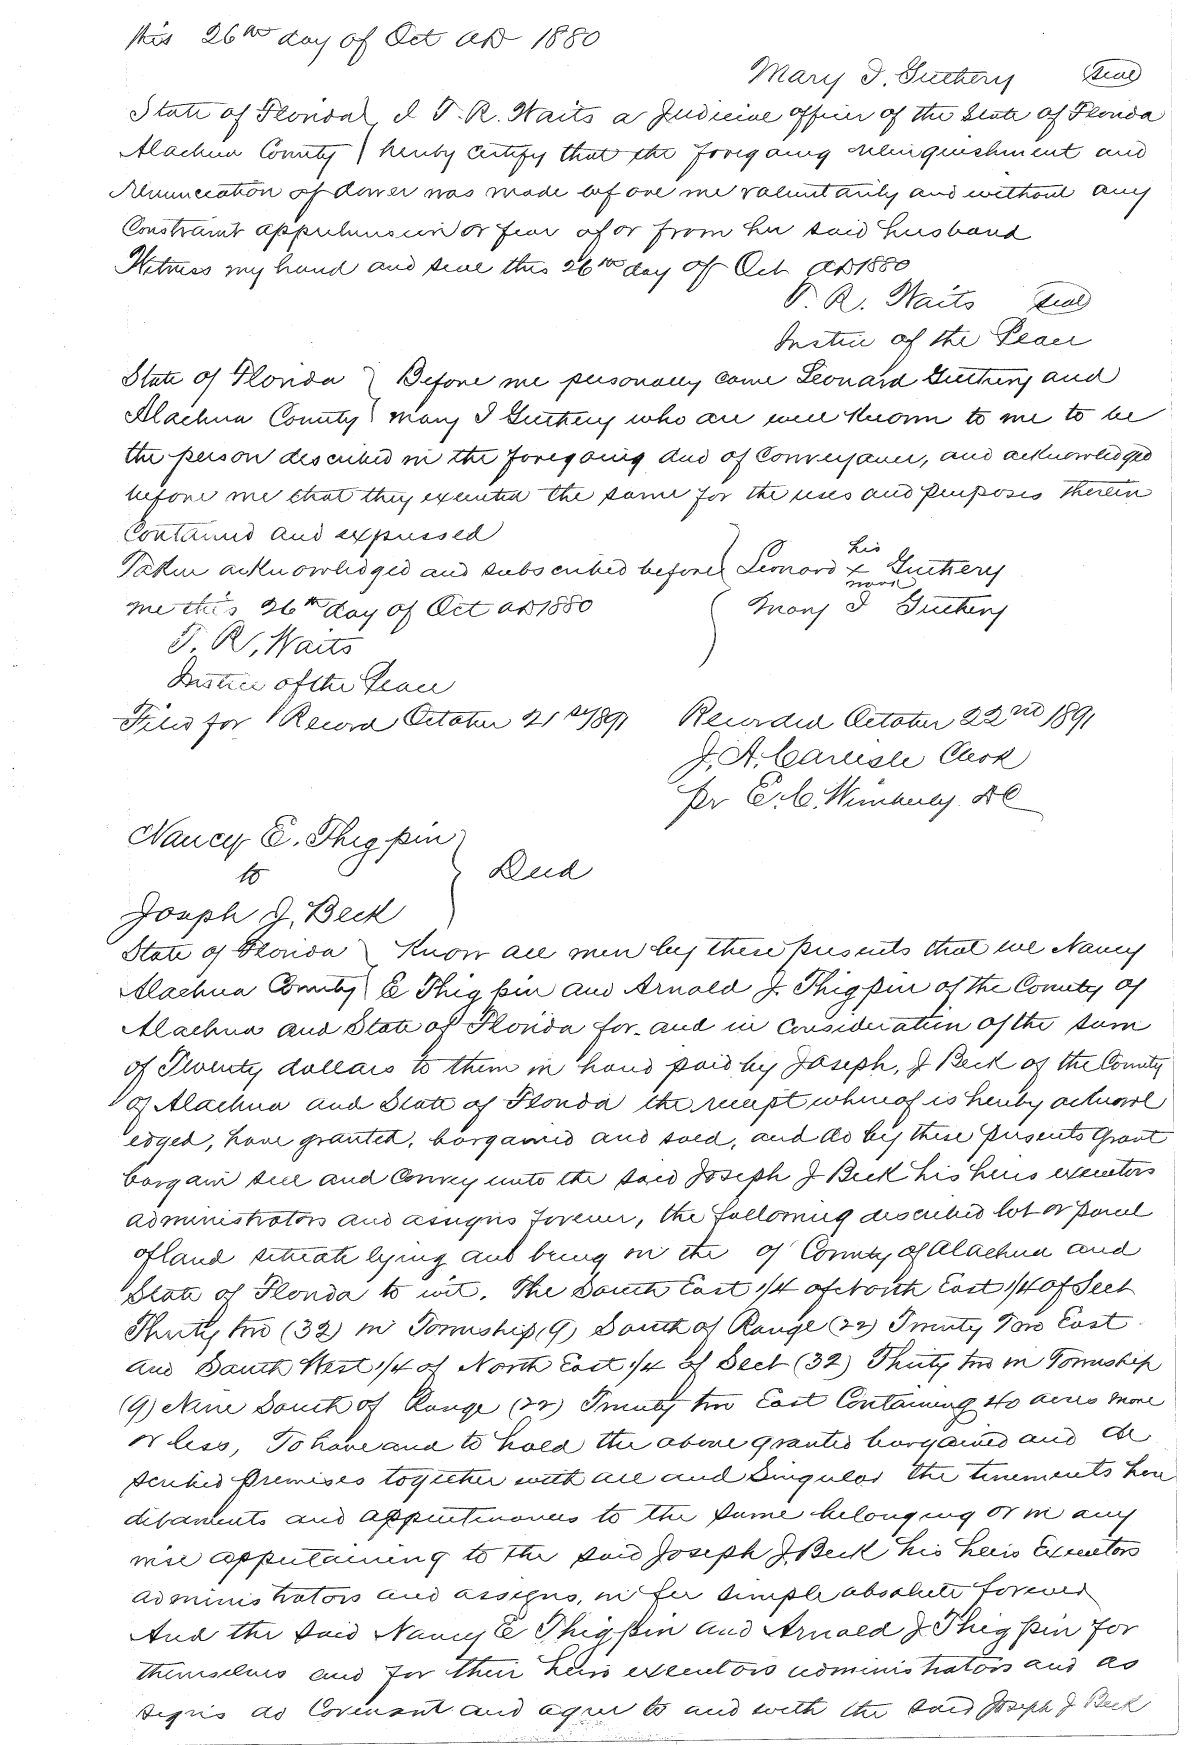 this 26th day of Oct AD 1880
Mary I. Guthery (seal)
State of Florida } I T. R. Waits a Judicial officer of the State of Florida
Alachua County } hereby certify that the foregoing relinquishment and
Renunciation of dower was made before me voluntarily and without any
Constraint apprehension or fear of or from her said husband
Witness my hand and seal this 26th day of Oct AD 1880
T. R. Waits (seal)
Justice of the Peace
State of Florida } Before me personally came Leonard Guthery and
Alachua County } Mary I Guthery who are well known to me to be
the person described in the foregoing deed of conveyance, and acknowledged
before me that they executed the same for the uses and purposes therein
Contained and expressed
Taken acknowledged and subscribed before } Leonard his x mark Guthery
me this 26th day of Oct AD 1880 } Mary I Guthery
T. R. Waits
Justice of the Peace
Filed for Record October 21st 1891 Recorded October 22nd 1891
J. A. Carlisle Clerk
pr E. C. Wimberly DC
Nancy E. Thigpin
to } Deed
Joseph J. Beck
State of Florida } Know all men by these presents that we Nancy
Alachua County } E Thigpin and Arnold J. Thigpin of the County of
Alachua and State of Florida for and in consideration of the sum
of Twenty dollars to them in hand paid by Joseph, J Beck of the County
of Alachua and State of Florida the receipt whereof is hereby acknowl
edged, have granted, bargained and sold, and do by these presents Grant
bargain sell and Convey unto the said Joseph J Beck his heirs executors
administrators and assigns forever, the following described lot or parcel
of land situate lying and being in the of County of Alachua and
State of Florida to wit. The South East 1/4 of North East 1/4 of Sect
Thirty two (32) in Township (9) South of Range (22) Twenty Two East
and South West 1/4 of North East 1/4 of Sect (32) Thirty two in Township
(9) Nine South of Range (22) Twenty two East Containing 40 acres more
or less, To have and to hold the above granted bargained and de
scribed premises together with all and Singular the tenements here
ditaments and appurtinances to the same belonging or in any
wise appertaining to the said Joseph J. Beck his heirs Executors
administrators and assigns, in fee simple absolute forever
And the said Nancy E Thigpin and Arnold J Thigpin for
themselves and for their heirs executors administrators and as
signs do Covenant and agree to and with the said Joseph J Beck